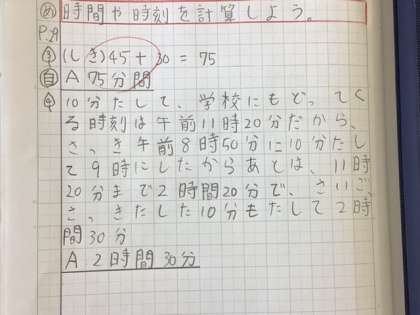 め 時間や時刻を計算しよう。
P.9
③ (しき)45+30=75
自 A 75分間
④ 10分たして、学校にもどってく
る時刻は午前11時20分だから、
さっき午前8時50分に10分たし
て9時にしたからあとは、11時
20分まで2時間20分で、さいご、
さっきたした10分もたして2時
間30分
A 2時間30分